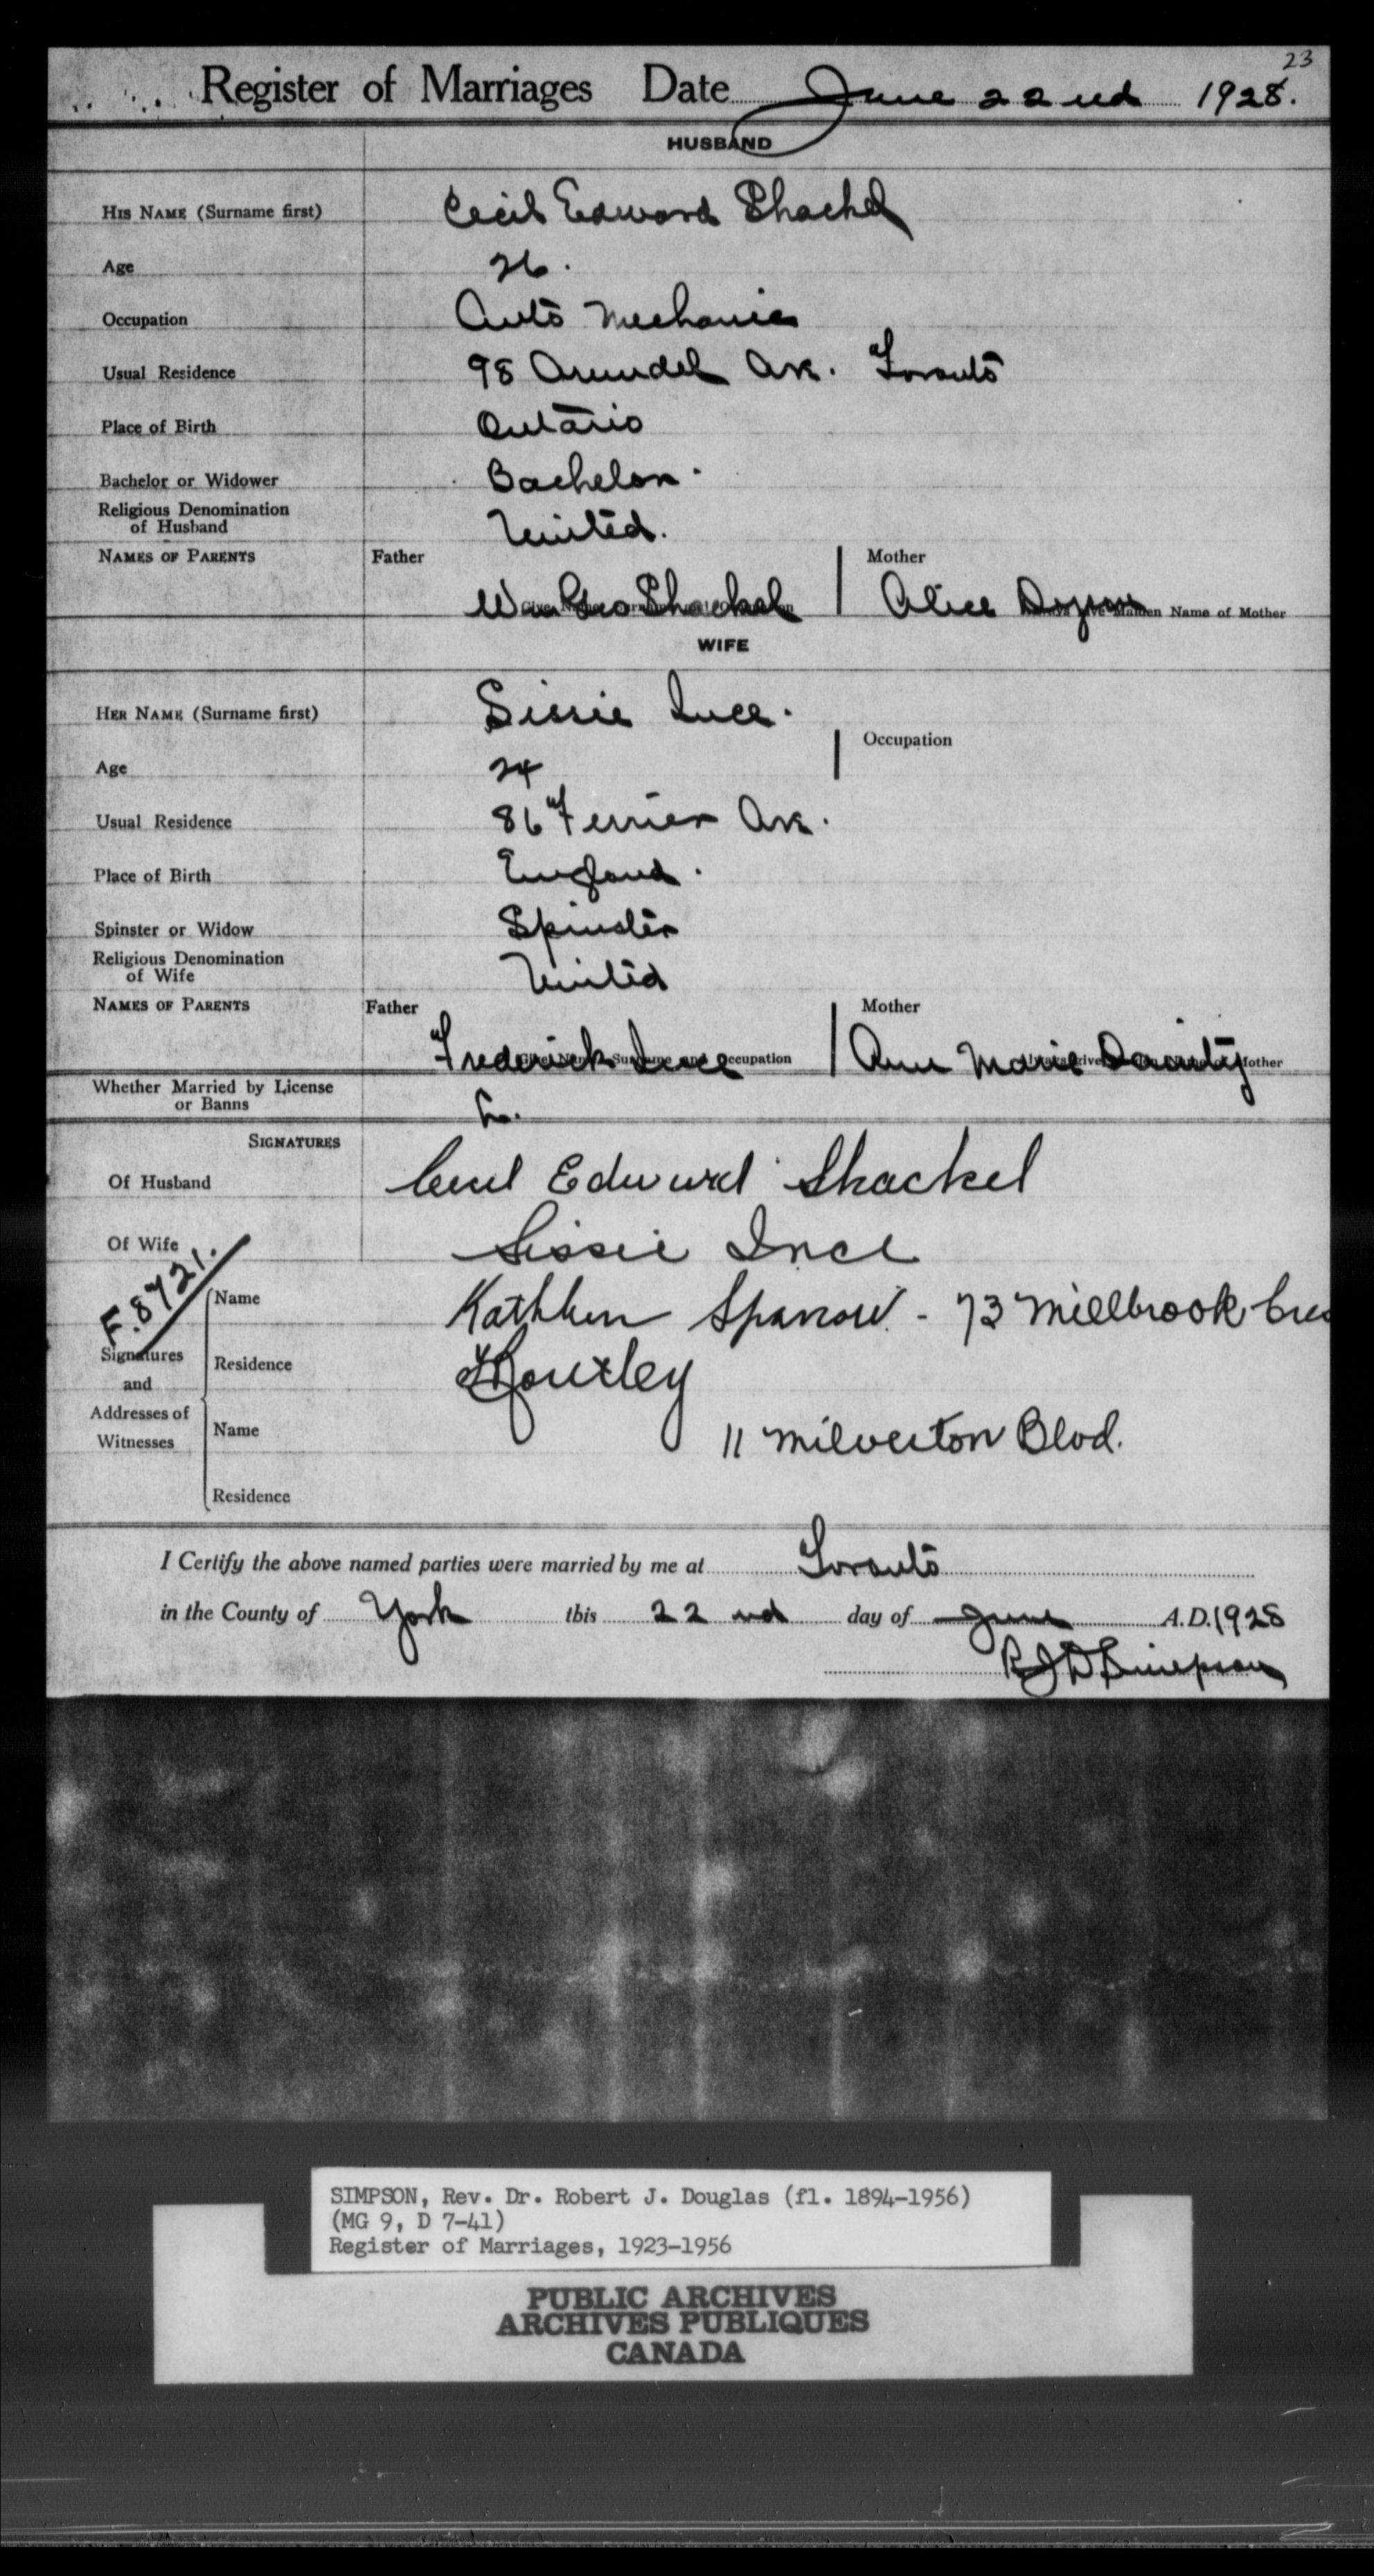 23
Register of Marriages Date June 22nd 1928.
HUSBAND
HIS NAME (Surname first) Cecil Edward Shackel
Age 26.
Occupation Auto Mechanic
Usual Residence 98 Arundel Ave. Toronto
Place of Birth Ontario
Bachelor or Widower Bachelor.
Religious Denomination
of Husband United.
NAMES OF PARENTS Father Mother
Wm Geo Shackel Alice Dyson
Name of Mother
WIFE
HER NAME (Surname first) Sissie Ince.
Occupation
Age 24
Usual Residence 86 Ferrier Ave.
Place of Birth England.
Spinster or Widow Spinster
Religious Denomination
of Wife United
NAMES OF PARENTS Father Mother
Frederick Ince Occupation Ann Marie Dainty Mother
Whether Married by License
or Banns L.
SIGNATURES
Of Husband Cecil Edward Shackel
Of Wife Sissie Ince
F.8721.
Name Kathleen Sparrow - 73 Millbrook Cres
Signatures
and
Addresses of
Witnesses
Residence
Name 11 Milverton Blvd.
Residence
I Certify the above named parties were married by me at Toronto
in the County of York this 22nd day of June A.D. 1928
RJD Simpson
SIMPSON, Rev. Dr. Robert J. Douglas (fl. 1894-1956)
(MG 9, D 7-41)
Register of Marriages, 1923-1956
PUBLIC ARCHIVES
ARCHIVES PUBLIQUES
CANADA